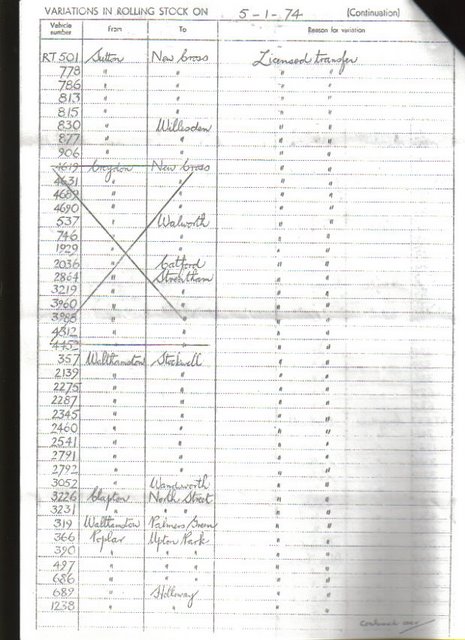 VARIATIONS IN ROLLING STOCK ON 5-1-74 (Continuation)
Vehicle number From To Reason for variation
RT 501 Sutton New Cross Licensed transfer
778 " " " "
786 " " " "
813 " " " "
815 " " " "
830 " Willesden " "
877 " " " "
906 " " " "
4619 Croydon New Cross " "
4631 " " " "
4689 " " " "
4690 " " " "
537 " Walworth " "
746 " " " "
1929 " " " "
2036 " Catford " "
2864 " Streatham " "
3219 " " " "
3960 " " " "
3988 " " " "
4312 " " " "
4452 " " " "
357 Walthamstow Stockwell " "
2139 " " " "
2275 " " " "
2287 " " " "
2345 " " " "
2460 " " " "
2541 " " " "
2791 " " " "
2792 " " " "
3052 " Wandsworth " "
3226 Clapton North Street " "
3231 " " " " "
319 Walthamstow Palmers Green " "
366 Poplar Upton Park " "
390 " " " "
497 " " " "
686 " " " "
689 " Holloway " "
1238 " " " "
Continued over